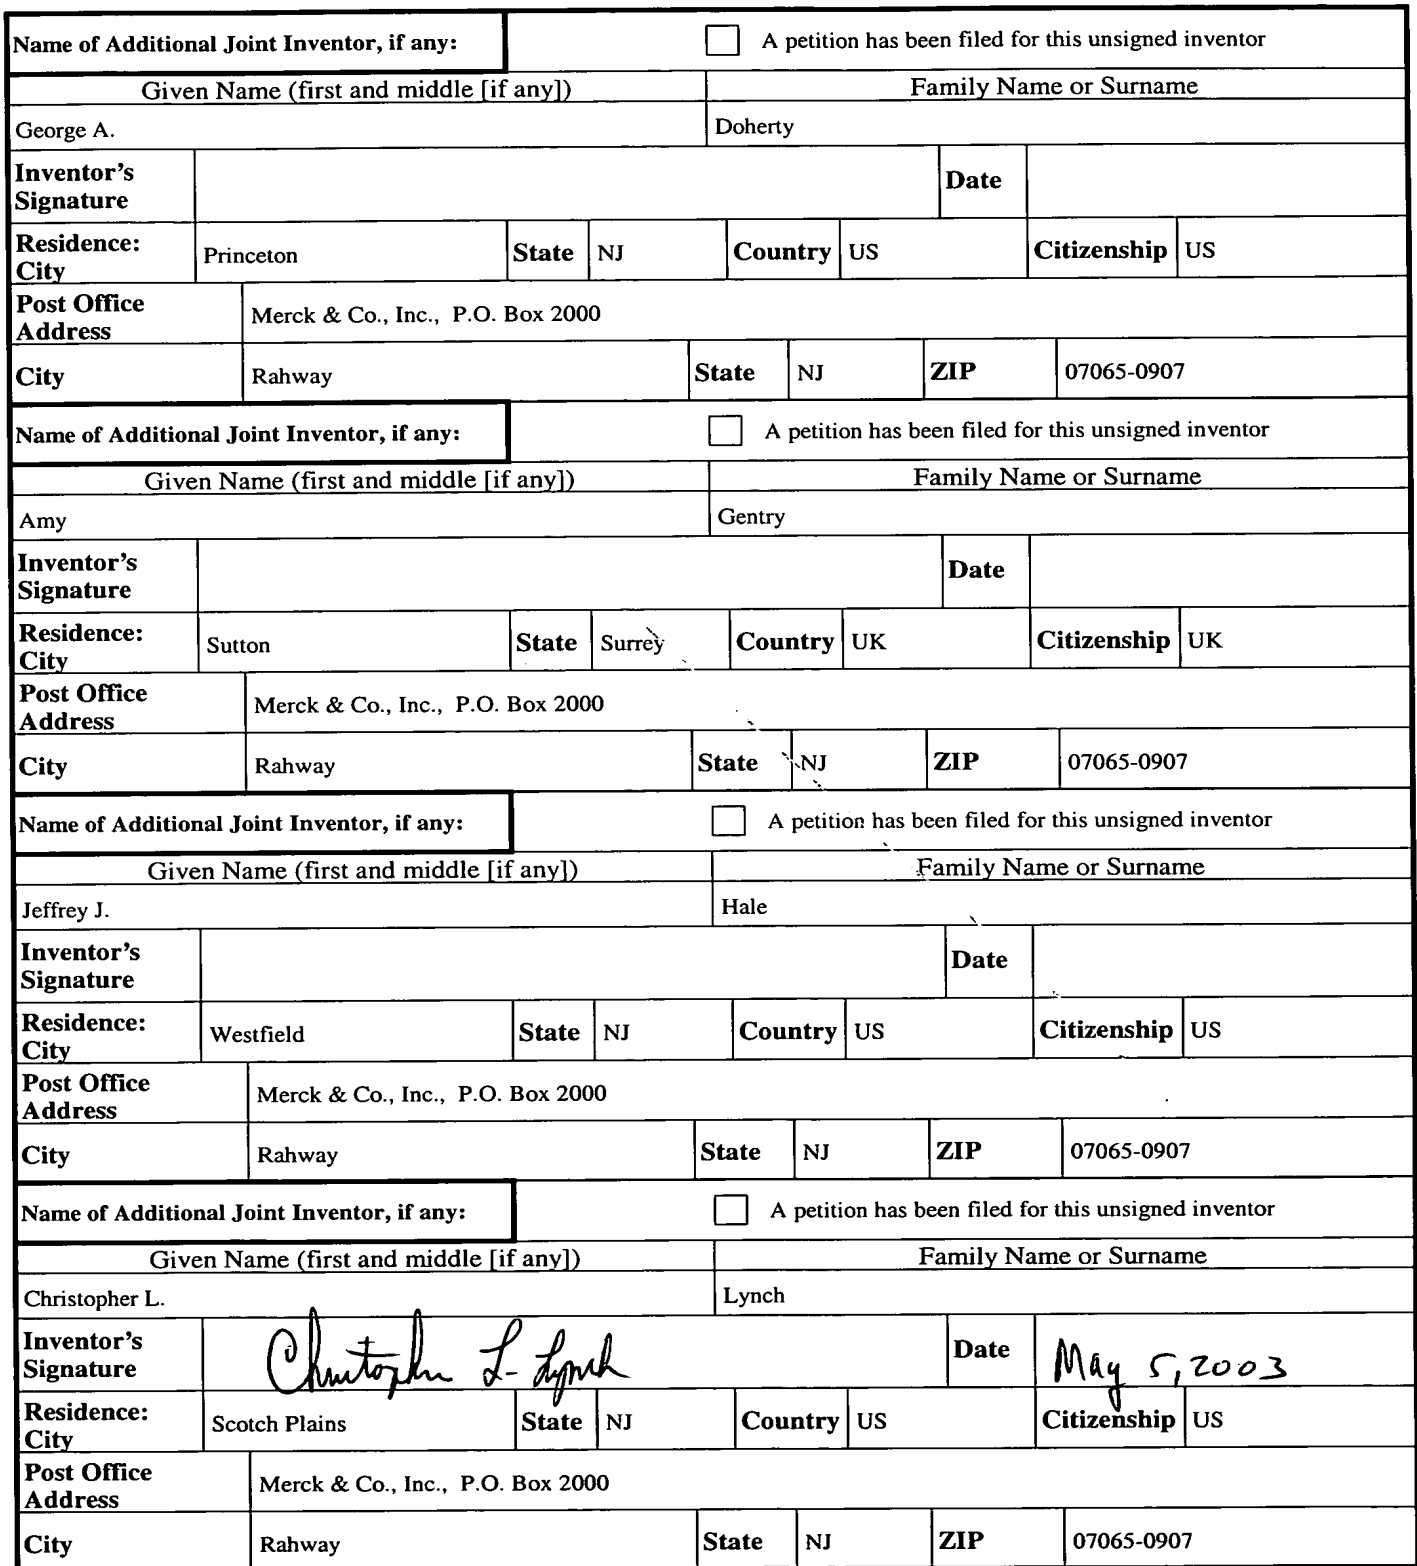 Name of Additional Joint Inventor, if any: A petition has been filed for this unsigned inventor
Given Name (first and middle [if any]) Family Name or Surname
George A. Doherty
Inventor's Signature Date
Residence: City Princeton State NJ Country US Citizenship US
Post Office Address Merck & Co., Inc., P.O. Box 2000
City Rahway State NJ ZIP 07065-0907
Name of Additional Joint Inventor, if any: A petition has been filed for this unsigned inventor
Given Name (first and middle [if any]) Family Name or Surname
Amy Gentry
Inventor's Signature Date
Residence: City Sutton State Surrey Country UK Citizenship UK
Post Office Address Merck & Co., Inc., P.O. Box 2000
City Rahway State NJ ZIP 07065-0907
Name of Additional Joint Inventor, if any: A petition has been filed for this unsigned inventor
Given Name (first and middle [if any]) Family Name or Surname
Jeffrey J. Hale
Inventor's Signature Date
Residence: City Westfield State NJ Country US Citizenship US
Post Office Address Merck & Co., Inc., P.O. Box 2000
City Rahway State NJ ZIP 07065-0907
Name of Additional Joint Inventor, if any: A petition has been filed for this unsigned inventor
Given Name (first and middle [if any]) Family Name or Surname
Christopher L. Lynch
Inventor's Signature Christopher L. Lynch Date May 5, 2003
Residence: City Scotch Plains State NJ Country US Citizenship US
Post Office Address Merck & Co., Inc., P.O. Box 2000
City Rahway State NJ ZIP 07065-0907